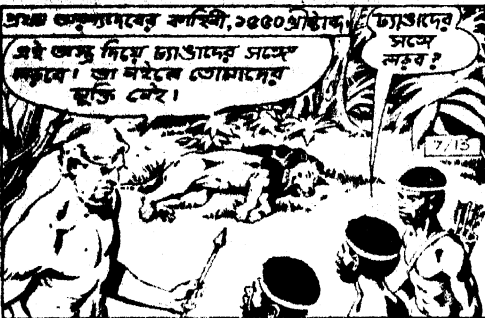 প্রথম অরণ্যদেবের কাহিনী, ১৫৫০ খ্রীষ্টাব্দ
এই অস্ত্র দিয়ে ঢ্যাঙাদের সঙ্গে
লড়বে। তা নইলে তোমাদের
মুক্তি নেই।
ঢ্যাঙাদের
সঙ্গে
লড়ব?
7/13